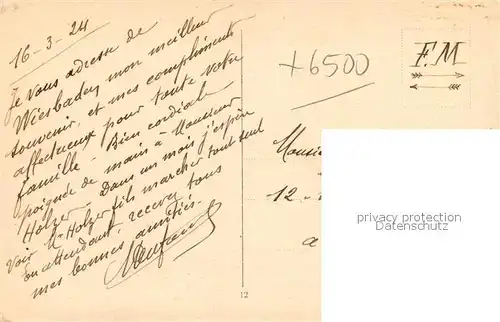 16-3-24
Je vous adresse de
Wiesbaden mon meilleur
souvenir et mes compliments
affectueux pour toute votre
famille - Bien cordiale
poignée de main à Monsieur
Holzer - Dans un mois j'espère
voir Mr Holzer fils marcher tout seul
En attendant recevez tous
mes bonnes amitiés.
+6500
F.M
12
12
a
privacy protection
Datenschutz